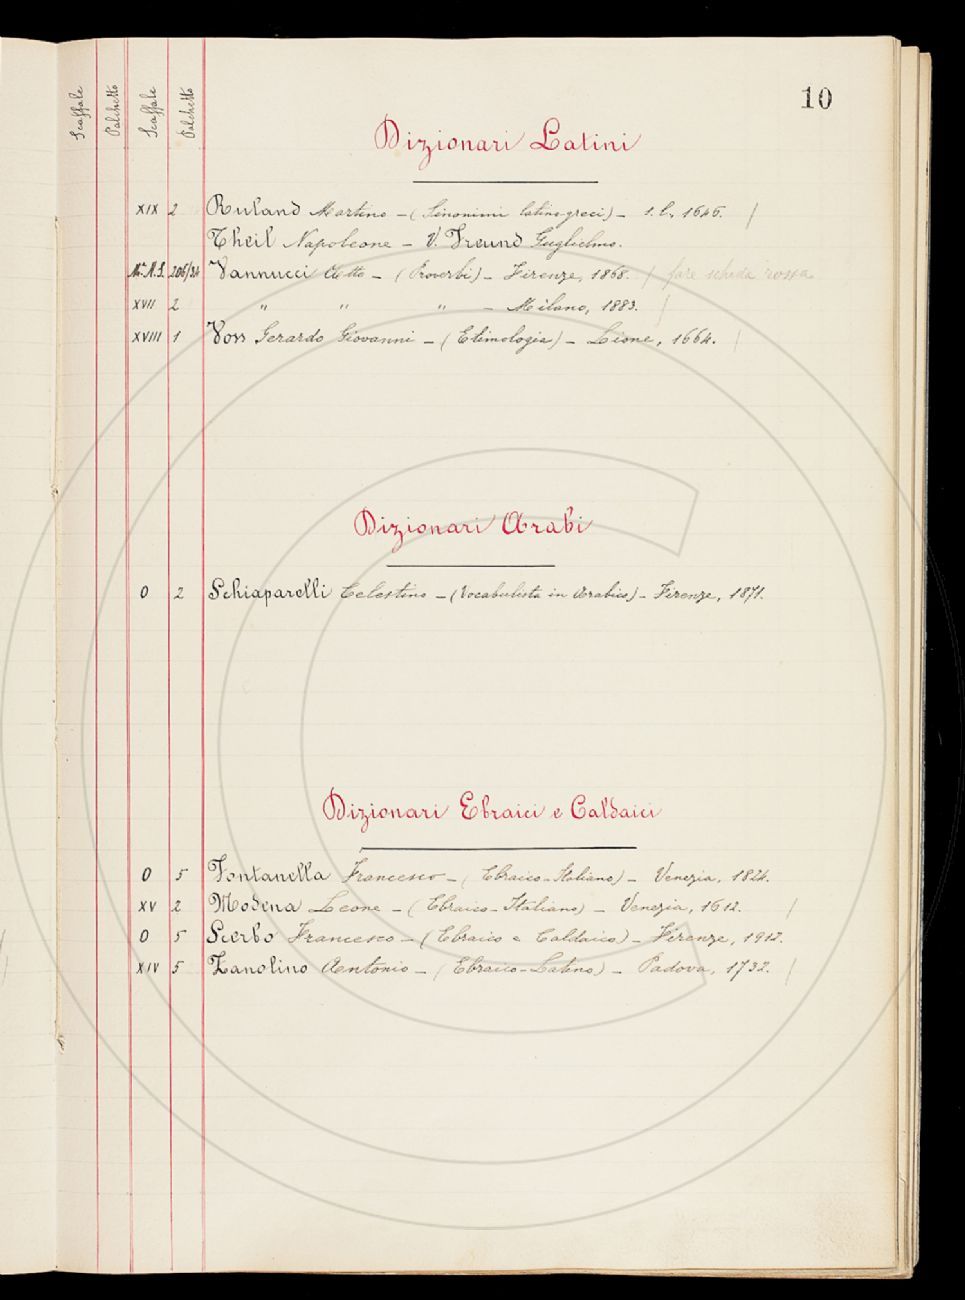 10
Scaffale Palchetto Scaffale Palchetto
Dizionari Latini
XIX 2 Ruland Martino – (Sinonimi latino-greci) – s. l., 1646. /
Theil Napoleone – V. Freund Guglielmo.
206/34 Vannucci Atto – (Proverbi) – Firenze, 1868. / fare scheda rossa
XVII 2 " " " – Milano, 1883. /
XVIII 1 Voss Gerardo Giovanni – (Etimologia) – Lione, 1664. /
Dizionari Arabi
0 2 Schiaparelli Celestino – (Vocabulista in Arabico) – Firenze, 1871.
Dizionari Ebraici e Caldaici
0 5 Fontanella Francesco – (Ebraico-Italiano) – Venezia, 1824.
XV 2 Modena Leone – (Ebraico-Italiano) – Venezia, 1612. /
0 5 Scerbo Francesco – (Ebraico e Caldaico) – Firenze, 1912.
XIV 5 Zanolino Antonio – (Ebraico-Latino) – Padova, 1732. /